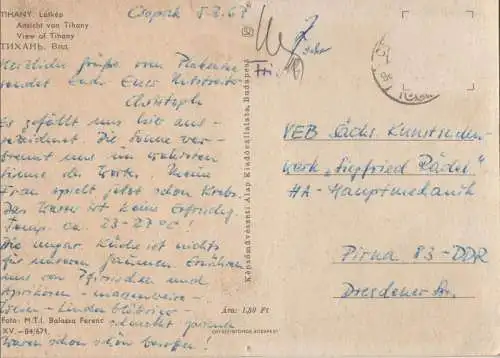 TIHANY Látkép
Ansicht von Tihany
View of Tihany
ТИХАНЬ. Вид
Csopak
Herzliche Grüße vom Plattensee
sendet Euch Euer
Christoph
Es gefällt uns hier aus-
gezeichnet. Die Sonne ver-
brennt uns im wahrsten
Sinne des Wortes. Meine
Frau spielt jetzt schon Krebs.
Das Wasser ist keine Erfrischg.
Temp. ca. 23-27°C!
Die ungar. Küche ist nichts
für unseren Gaumen. Ernähren
uns von Pfirsichen und
Aprikosen - massenweise -
schmeckt
Waren schon
Foto: M.T.I. Balassa Ferenc
XV.-84/671.
Képzőművészeti Alap Kiadóvállalata, Budapest
Ára: 1,80 Ft
OFFSETNYOMDA BUDAPEST
VEB Sächs. Kunstseiden-
werk „Siegfried Rädel"
HA-Hauptmechanik
Pirna 83-DDR
Dresdener Str.